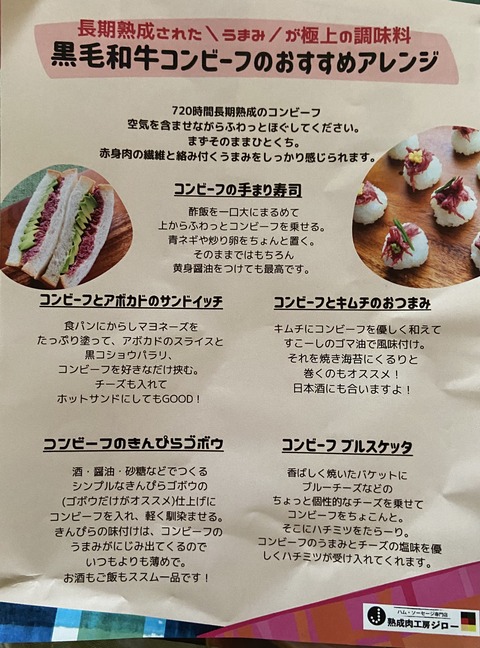 長期熟成された＼うまみ／が極上の調味料
黒毛和牛コンビーフのおすすめアレンジ
720時間長期熟成のコンビーフ
空気を含ませながらふわっとほぐしてください。
まずそのままひとくち。
赤身肉の繊維と絡み付くうまみをしっかり感じられます。
コンビーフの手まり寿司
酢飯を一口大にまるめて
上からふわっとコンビーフを乗せる。
青ネギや炒り卵をちょんと置く。
そのままではもちろん
黄身醤油をつけても最高です。
コンビーフとアボカドのサンドイッチ
食パンにからしマヨネーズを
たっぷり塗って、アボカドのスライスと
黒コショウパラリ、
コンビーフを好きなだけ挟む。
チーズも入れて
ホットサンドにしてもGOOD！
コンビーフとキムチのおつまみ
キムチにコンビーフを優しく和えて
すこーしのゴマ油で風味付け。
それを焼き海苔にくるりと
巻くのもオススメ！
日本酒にも合いますよ！
コンビーフのきんぴらゴボウ
酒・醤油・砂糖などでつくる
シンプルなきんぴらゴボウの
(ゴボウだけがオススメ)仕上げに
コンビーフを入れ、軽く馴染ませる。
きんぴらの味付けは、コンビーフの
うまみがにじみ出てくるので
いつもよりも薄めで。
お酒もご飯もススム一品です！
コンビーフ ブルスケッタ
香ばしく焼いたバケットに
ブルーチーズなどの
ちょっと個性的なチーズを乗せて
コンビーフをちょこんと。
そこにハチミツをたらーり。
コンビーフのうまみとチーズの塩味を優
しくハチミツが受け入れてくれます。
ハム・ソーセージ専門店
熟成肉工房ジロー